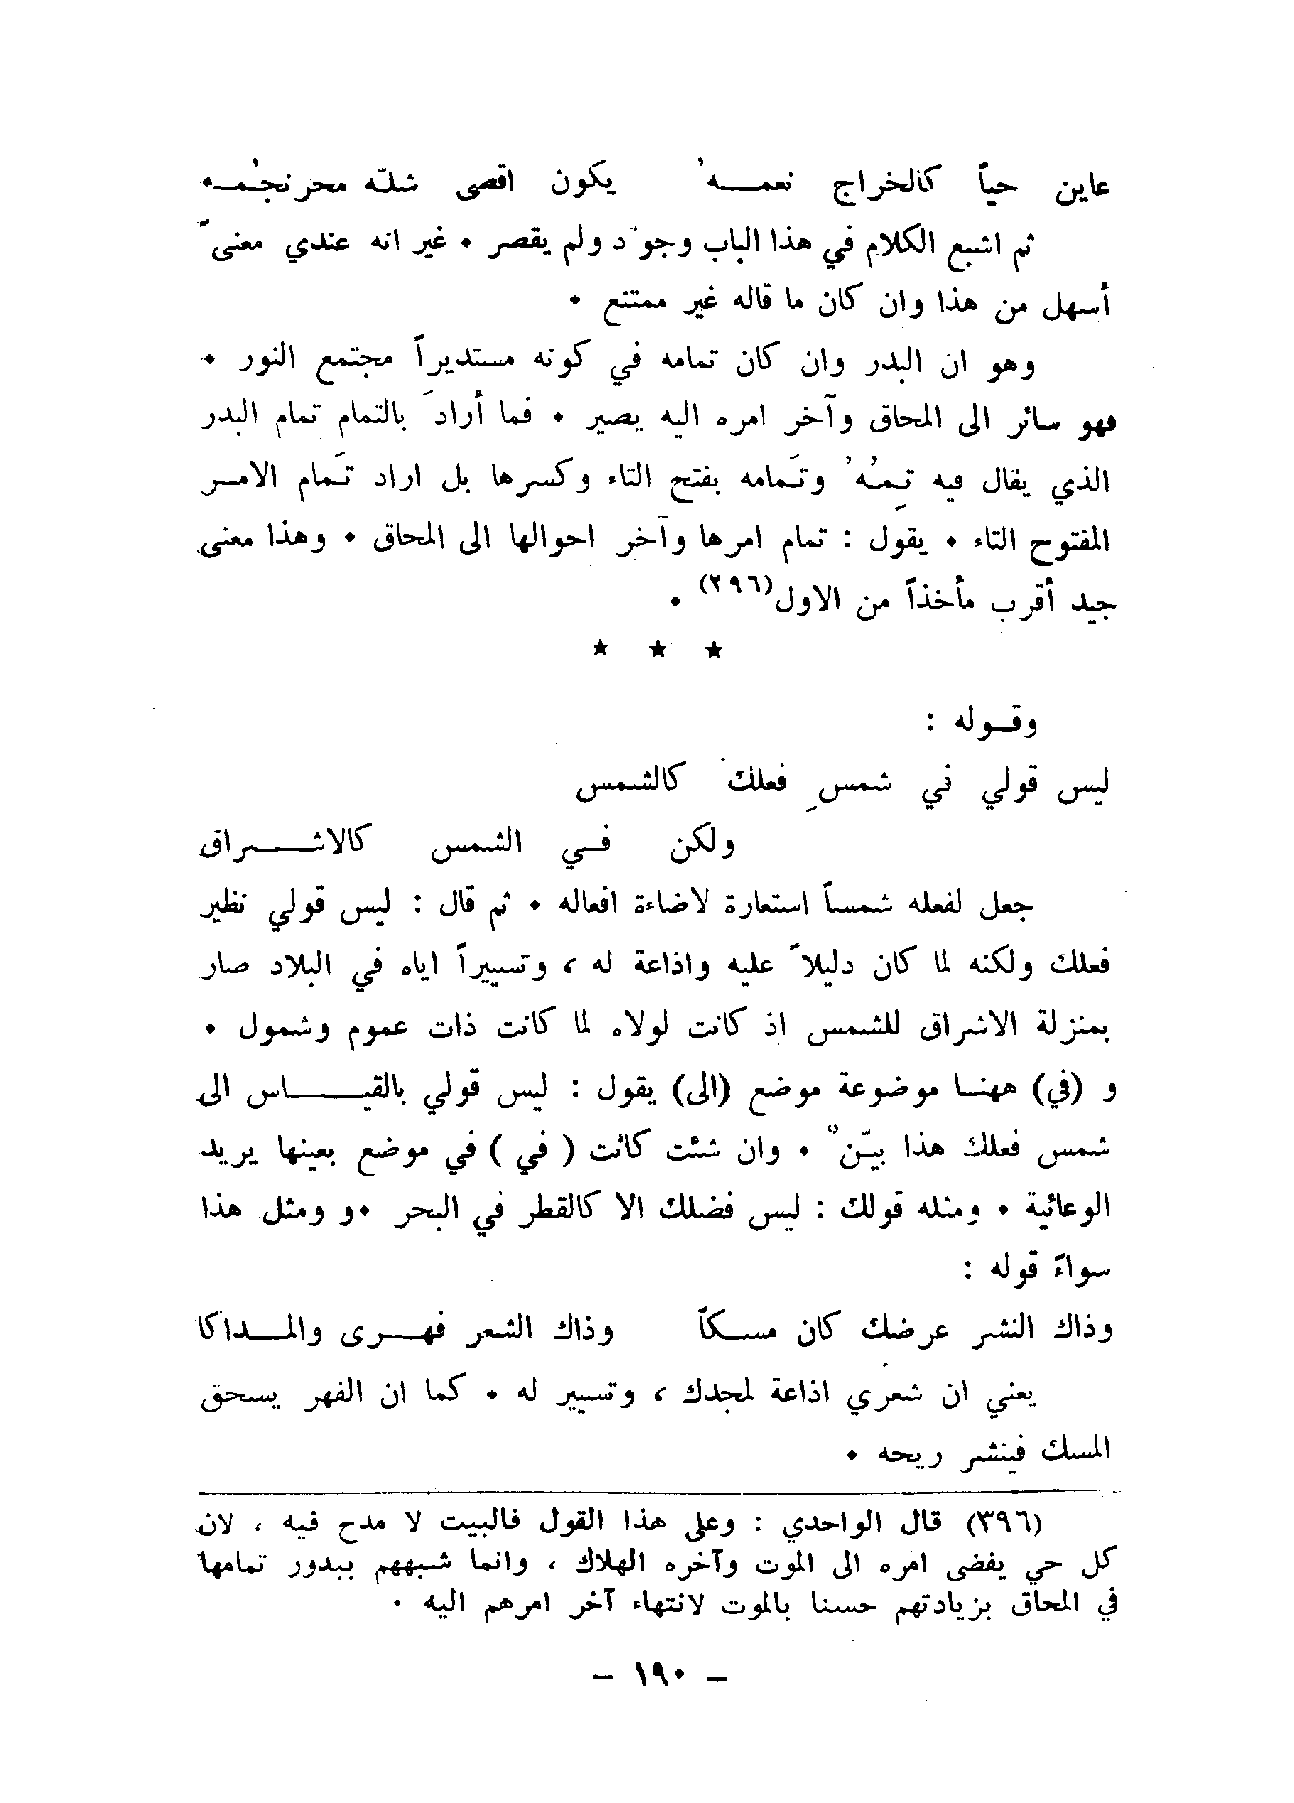 عاين حياً كالخراج نعمـــه ُ يكون اقصى شلته محر نجُمــه
ثم اشبع الكلام في هذا الباب وجوّد ولم يقصر ٠ غير انه عندي معنىً
أسهل من هذا وان كان ما قاله غير ممتنع ٠
وهو ان البدر وان كان تمامه في كونه مستديراً مجتمع النور ٠
فهو سائر الى المحاق وآخر امره اليه يصير ٠ فما أرادَ بالتمام تمام البدر
الذي يقال فيه تِمُّهُ وتَمامه بفتح التاء وكسرها بل اراد تَمام الامـر
المفتوح التاء ٠ يقول : تمام امرها وآخر احوالها الى المحاق ٠ وهذا معنى
جيد أقرب مأخذاً من الاول(٢٩٦) ٠
★ ★ ★
وقـوله :
ليس قولي في شمسِ فعلك كالشمس
ولكن فـي الشمس كالاشــراق
جعل لفعله شمساً استعارة لاضاءة افعاله ٠ ثم قال : ليس قولي نظير
فعلك ولكنه لما كان دليلاً عليه واذاعة له ، وتسييراً اياه في البلاد صار
بمنزلة الاشراق للشمس اذ كانت لولاه لما كانت ذات عموم وشمول ٠
و (في) ههنـا موضوعة موضع (الى) يقول : ليس قولي بالقيـــاس الى
شمس فعلك هذا بيّنٌ ٠ وان شئت كانت ( في ) في موضع بعينها يريد
الوعائية ٠ ومثله قولك : ليس فضلك الا كالقطر في البحر ٠و ومثل هذا
سواءً قوله :
وذاك النشر عرضك كان مسـكاً وذاك الشعر فهـرى والمـداكا
يعني ان شعري اذاعة لمجدك ، وتسيير له ٠ كما ان الفهر يسحق
المسك فينشر ريحه ٠
(٣٩٦) قال الواحدي : وعلى هذا القول فالبيت لا مدح فيه ، لان
كل حي يفضى امره الى الموت وآخره الهلاك ، وانما شبههم ببدور تمامها
في المحاق بزيادتهم حسنا بالموت لانتهاء آخر امرهم اليه ٠
– ١٩٠ –